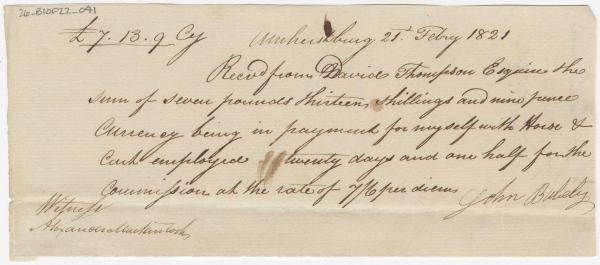 26_B10F22_041
£7.13.9 Cy Amherstburg 21st Febry 1821
Recvd from David Thompson Esquire the
sum of seven pounds thirteen shillings and nine pence
Currency being in payment for myself with Horse &
Cart employed twenty days and one half for the
Commission at the rate of 7/6 per diem
John
Witness
Alexander Mackintosh